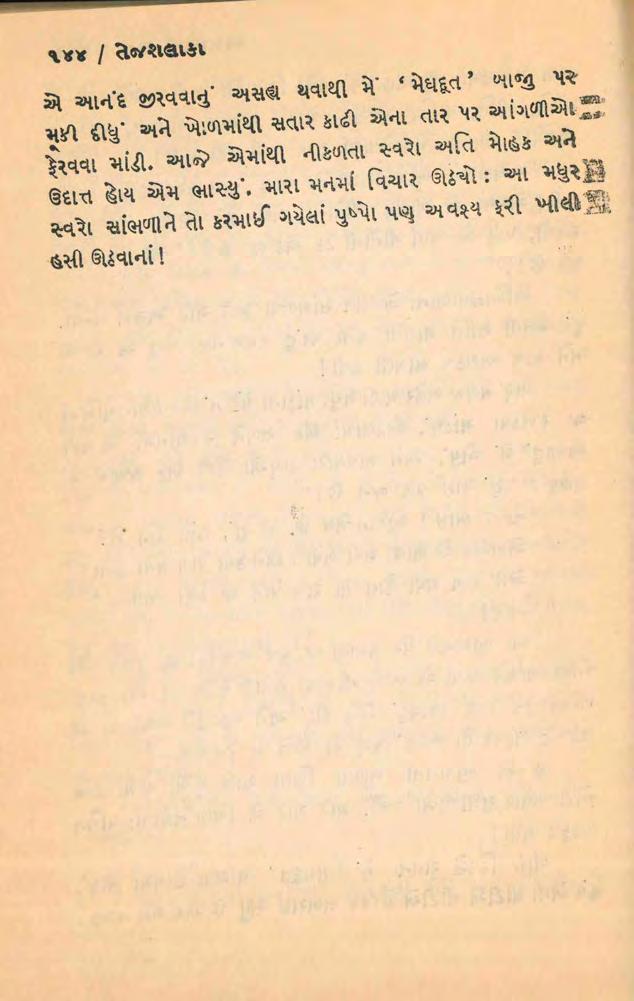 ૧૪૪ / તેજશલાકા
એ આનંદ જીરવવાનું અસહ્ય થવાથી મેં ‘મેઘદૂત’ બાજુ પર
મૂકી દીધું અને ખોળમાંથી સતાર કાઢી એના તાર પર આંગળીઓ
ફેરવવા માંડી. આજે એમાંથી નીકળતા સ્વરો અતિ મોહક અને
ઉદાત્ત હોય એમ ભાસ્યું. મારા મનમાં વિચાર ઊઠ્યો : આ મધુર
સ્વરો સાંભળીને તો કરમાઈ ગયેલાં પુષ્પો પણ અવશ્ય ફરી ખીલી
હસી ઊઠવાનાં !